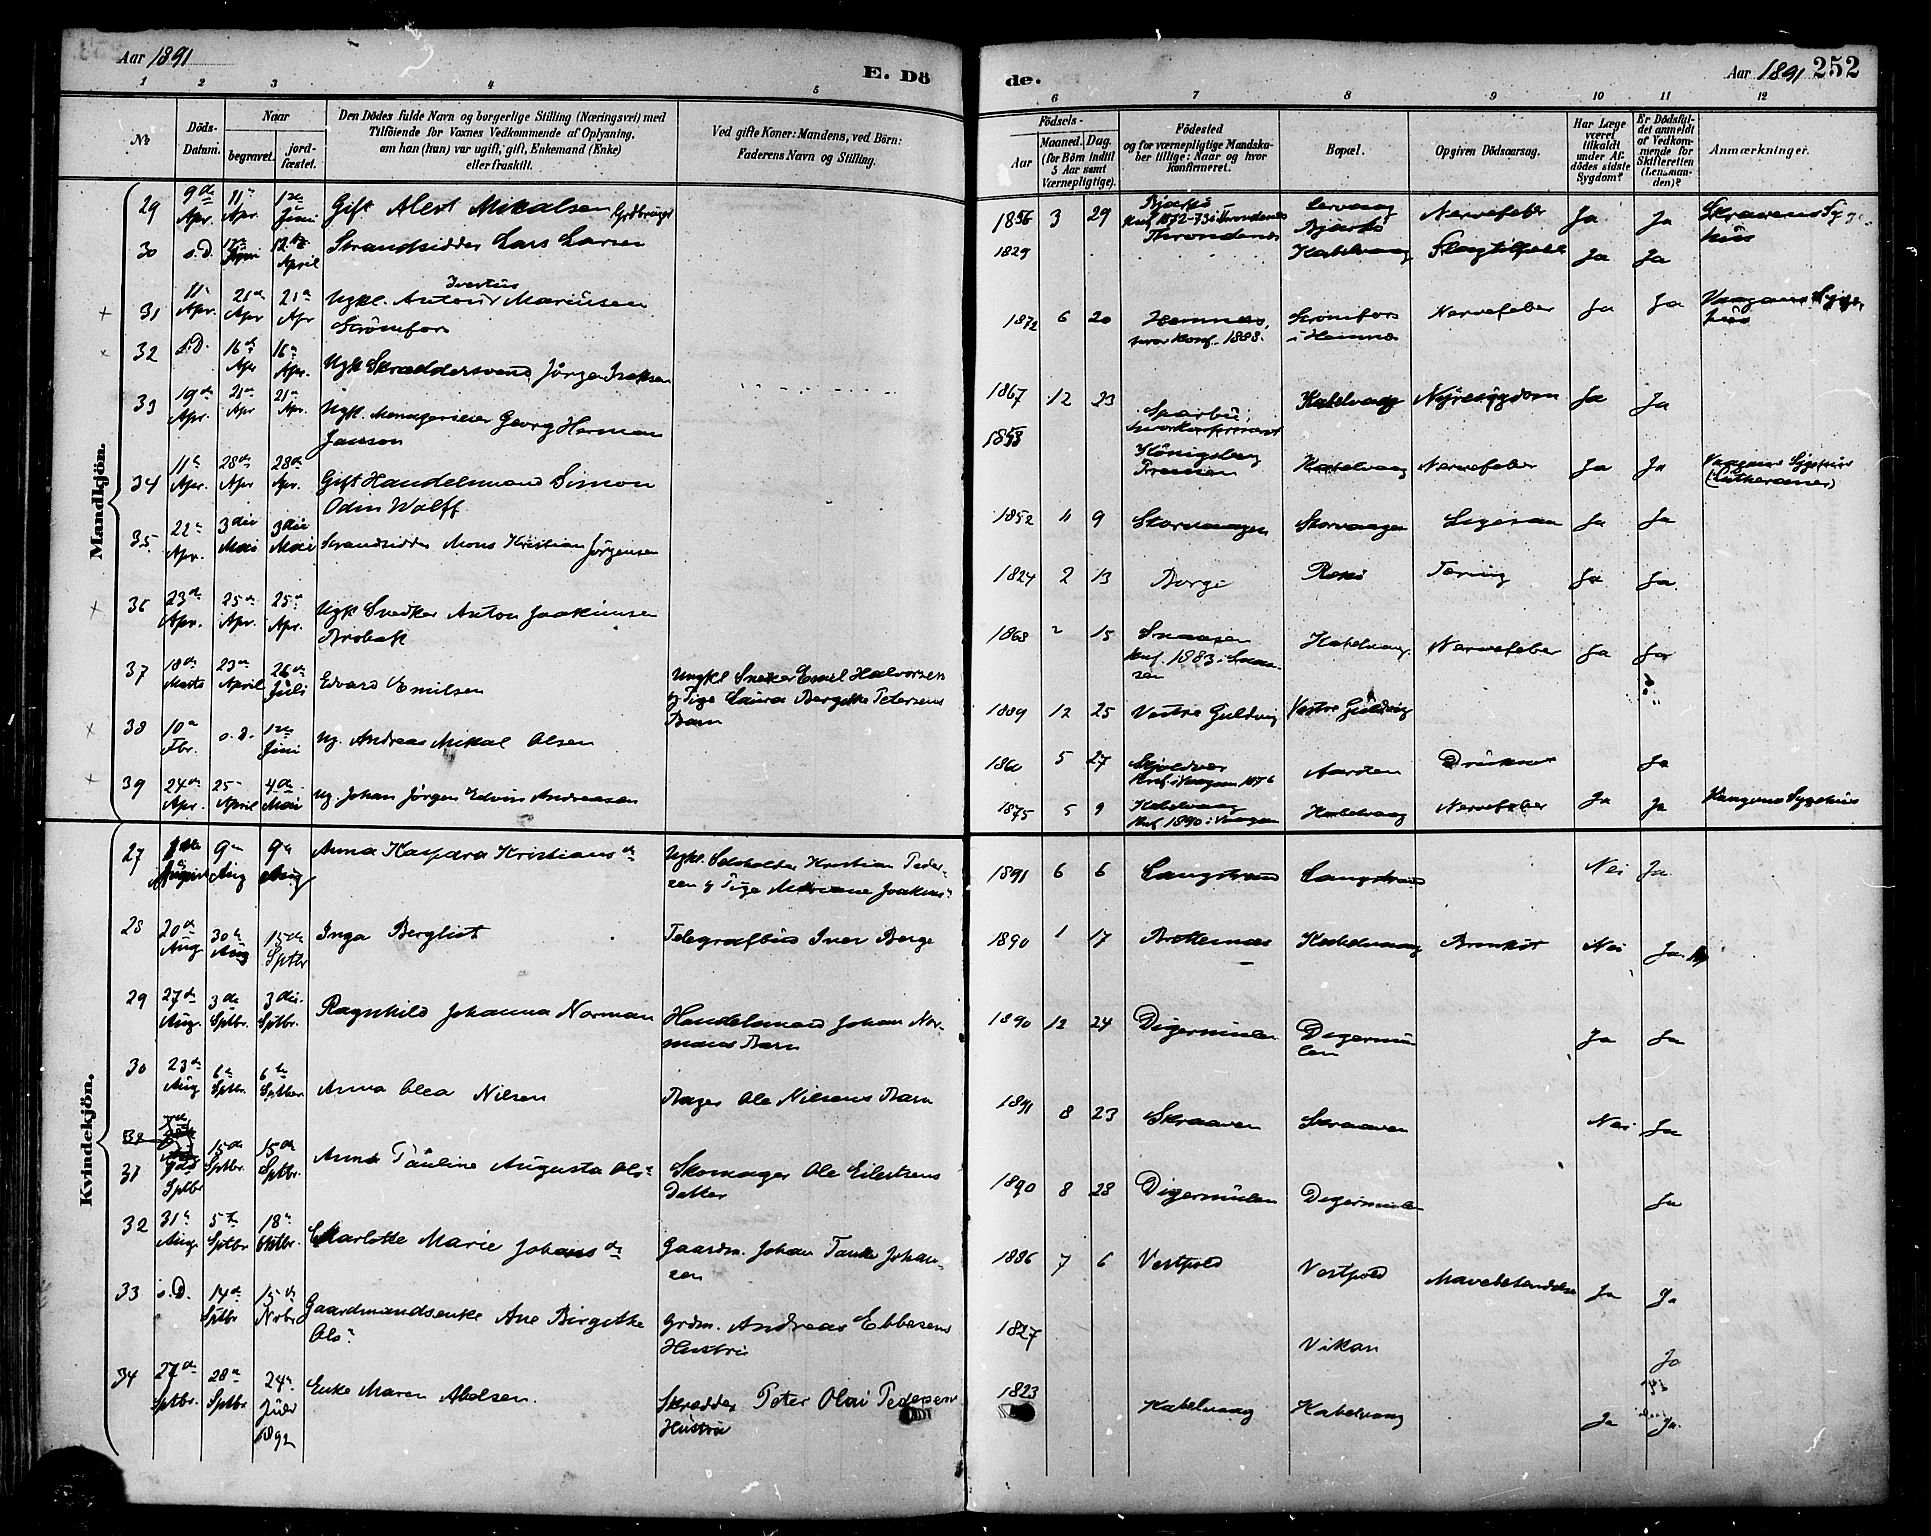 Aar 1891
E. Dö
de.
Aar 1891 252
1 2 3 4 5 6 7 8 9 10 11 12
No
Döds-Datum.
Naar
begravet.
jord-fæstet.
Den Dödes fulde Navn og borgerlige Stilling (Næringsvei) med
Tilföiende for Voxnes Vedkommende af Oplysning,
om han (hun) var ugift, gift, Enkemand (Enke)
eller fraskilt.
Ved gifte Koner: Mandens, ved Börn:
Faderens Navn og Stilling.
Födsels-
Aar
Maaned. Dag.
(for Börn indtil
5 Aar samt
Værnepligtige).
Födested
og for værnepligtige Mandska-
ber tillige: Naar og hvor
konfirmeret.
Bopæl.
Opgiven Dödsaarsag.
Har Læge
været
tilkaldt
under Af-
dödes sidste
Sygdom?
Er Dödsfal-
det anmeldt
af Vedkom-
mende for
Skifteretten
(Lensman-
den)?
Anmærkninger.
Mandkjön.
29 9de Apr. 11te Apr. 1ste Juni Gift Alert Mikalsen Grdbruger 1856 3 29 Bjarkö Konf 1872-73 i Throndenes Bjarkö Nervefeber Ja Ja Skraavens Syge-
hus
30 s.D. 12te April Strandsidder Lars Larsen 1829 Throndenes Kabelvaag Slagtilfælde Ja Ja
31 11te Apr. 21de Apr 21de Apr Ugkl. Antoni Mariusen 1872 6 20 Hemnes, Strömfors Nervefeber Ja Ja Vaagans Syge-
Strömfors hvor Konf. 1888. i Hemnes hus
32 s.D. 16de Apr 16de Apr. Ugk Skræddersvend Jörgen Isaksen 1867 12 23 Kabelvaag Nyresygdom Ja Ja
33 19de Apr. 21de Apr 21de Apr. Ugkl. Menagerieeier Georg Herman 1853 Königsberg Kabelvaag Nervefeber Ja Ja Vaagans Sygehus
Janson (Lutheraner)
34 11te Apr. 28de Apr 28de Apr. Gift Handelsmand Simon 1852 11 9 Storvaagen Storvaagen Ja Ja
Odin Wolff
35 22de Apr. 3die Mai 3die Mai Strandsidder Mons Kristian Jörgensen 1824 2 13 Borge Tæring Ja Ja
36 23de Apr. 25de Apr. 25de Apr. Ugk Snedker Anton Joakimsen 1868 2 15 Snaasen Kabelvaag Nervefeber Ja Ja
Brobak Konf. 1883 i Snaa-
sen
37 18de Marts 23de April 26de Juli Edvard Emilsen Ungkl Snekker Emil Halvorsen 1889 12 25 Vestre Guldvig Vestre Guldvig
g Pige Laura Bergitte Petersens
Barn
38 10de Fbr. s.D. 1ste Juni Ug. Andreas Mikal Olsen 5 27 Skjoldvær Druknet Ja
Konf. i Vaagan 1876
39 24de Apr. 25 April 4de Mai Ug. Johan Jörgen Edvin Andreasen 1875 5 9 Kabelvaag Kabelvaag Nervefeber Ja Ja Vaagans Sygehus
Konf. 1890 i Vaagan
Kvindekjön.
27 August 9de Aug 9de Aug Anna Kaspara Kristiansdr Ugkl. Selvholder Kristian Peder- 1891 6 6 Langstrand Langstrand Nei Ja
sen g Pige Joakims
28 20de Aug 30te Aug 15de Sptbr Inga Bergliot Telegrafbud Iver Berge 1890 1 17 Brettesnæs Kabelvaag Bronkit Nei Ja
29 27de Aug. 3de Sptbr. 3die Sptbr. Ragnhild Johanna Norman Handelsmand Johan Nor- 1890 12 24 Digermulen Digermu- Ja Ja
mans Barn len
30 23de Aug 6te Sptbr. 6te Sptber Anna Olea Nilsen Bager Ole Nilsens Barn 1891 8 23 Skraaven Skraaven Nei Ja
31 9de Sptbr 15de Sptbr. 15de Sptbr. Anna Pauline Augusta Ols Skomager Ole Eilertsens 1890 8 28 Digermulen Digermulen Ja
Datter
32 31te Aug. 5te Sptbr 18de Oktbr. Charlotte Marie Johansdr Gaardm. Johan Johan- 1886 7 6 Vestpold Vestpold Mavebetændelse Ja Ja
sen
33 s.D. 14de Sptbr 15de Novbr Gaardmandsenke Ane Birgitte Grdm. Andreas Ebbesens 1827 Vikan Ja
Ols Hustru
34 27de Sptbr. 28de Sptbr 24de Juli 1892 Enke Maren Abelsen. Skrædder Peter Olai Pedersens 1823 Kabelvaag Kabelvaag Ja Ja
Hustru